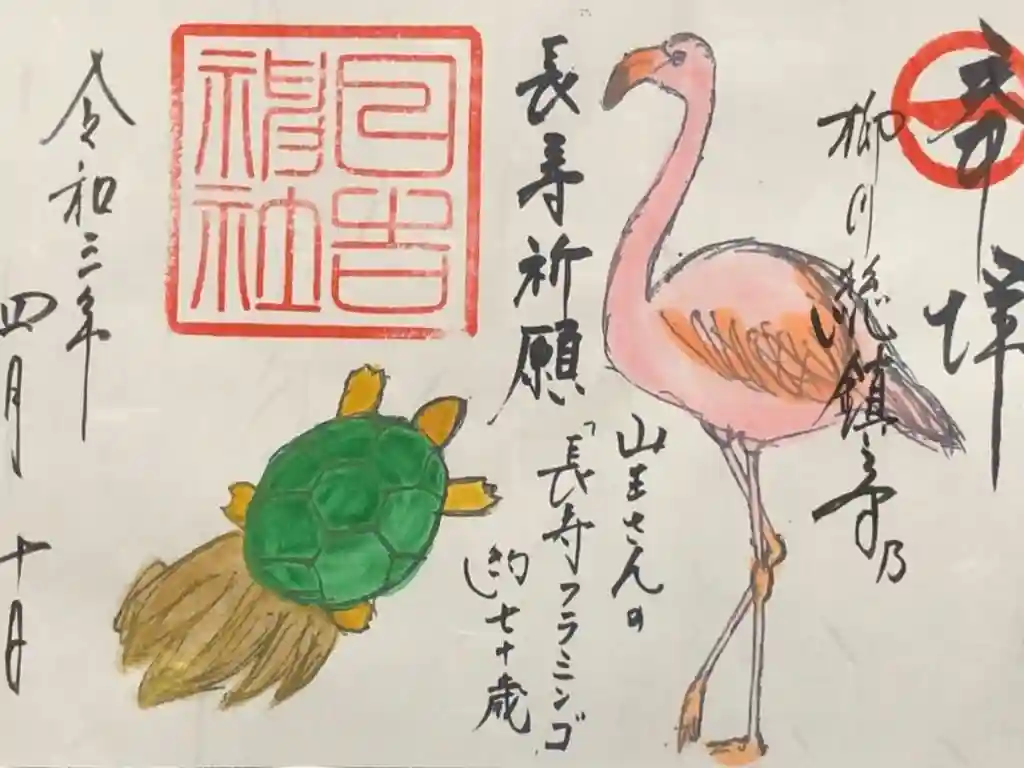 奉拝
柳川総鎮守乃
山王さんの
「長寿フラミンゴ
約七十歳
長寿祈願
日吉
神社
令和三年
四月十日